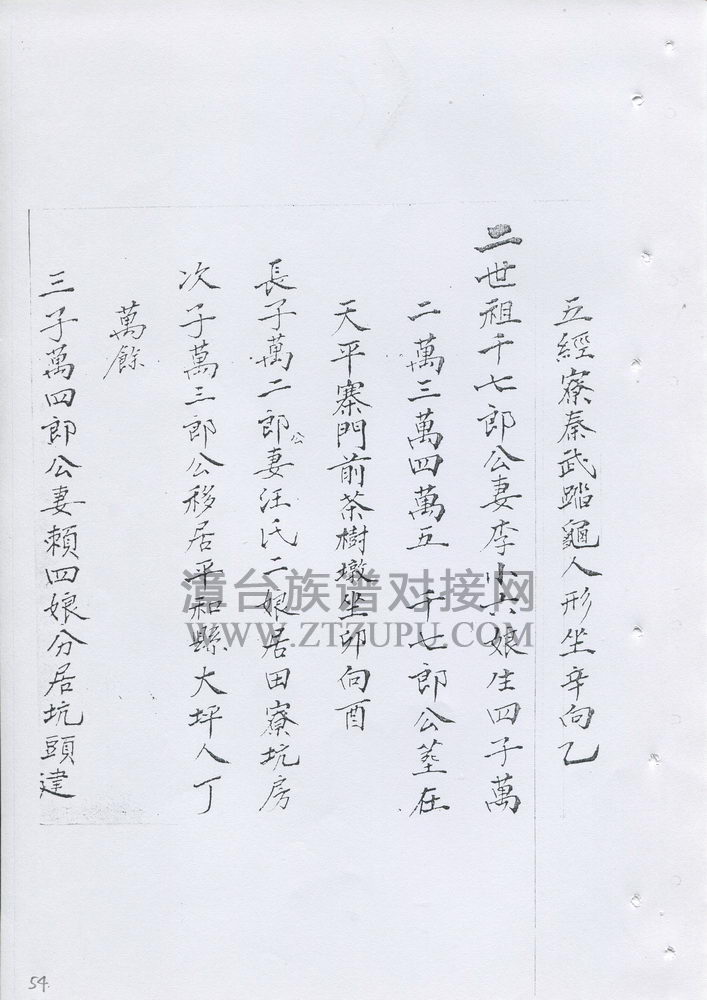 五經寮秦武踏龜人形坐辛向乙
二世祖千七郎公妻李小六娘生四子萬
二萬三萬四萬五 千七郎公墓在
天平寨門前茶樹墩坐卯向酉
長子萬二郎公妻汪氏二娘居田寮坑房
次子萬三郎公移居平和縣大坪人丁
萬餘
三子萬四郎公妻賴四娘分居坑頭建
漳台族谱对接网
WWW.ZTZUPU.COM
54